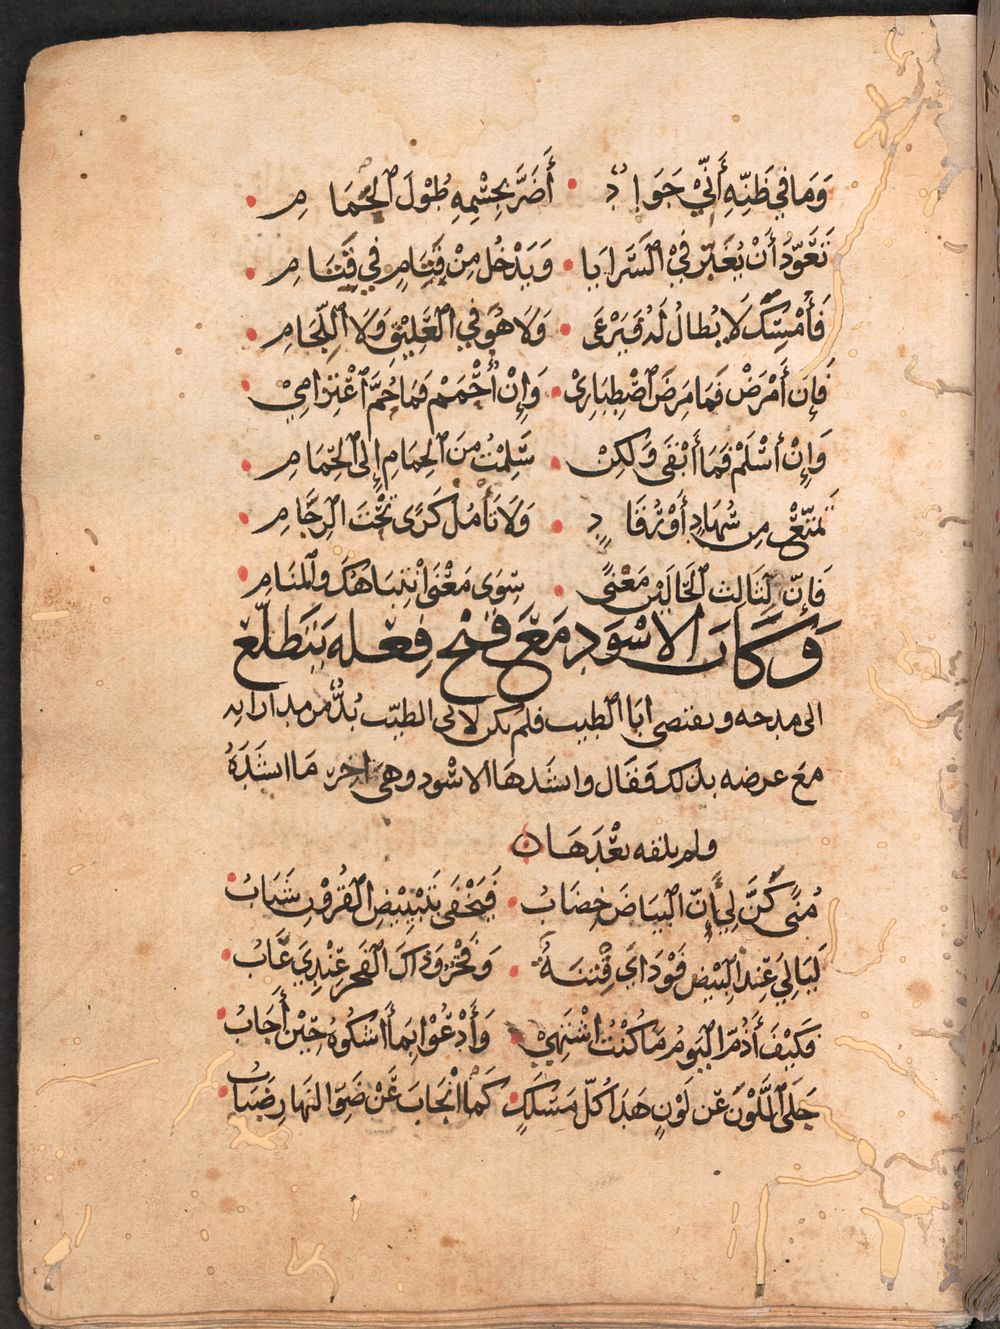 وَمَا في طَبِّهِ أَنّي جَوَادٌ • أَضَرَّ بِجِسْمِهِ طُوْلُ الجَمَامِ •
تَعَوَّدَ أَنْ يُغَبِّرَ فِيْ السَّرَايَا • وَيَدْخُلَ مِنْ قَتَامٍ فِي قَتَامِ •
فَأُمْسِكَ لَا يُطالُ لَهُ فَيَرْعَى • وَلَا هُوَ فِي العَلِيْقِ وَلَا اللِّجَامِ •
فَإِن أَمْرَضْ فَمَا مَرِضَ اصْطِبَارِيْ • وَإِنْ أُحْمَمْ فَمَا حُمَّ اعْتِزَامِيْ
وَإِنْ أَسْلَمْ فَمَا أَبْقَى وَلَكِنْ • سَلِمْتُ مِنَ الحِمَامِ إِلى الحِمَامِ •
تَمَتَّعْ مِن سُهَادٍ أَوْ رُقَادٍ • وَلَا تَأْمُلْ كَرًى تَحْتَ الرِّجَامِ •
فَإِنّ لِثَالِثِ الحَالَينِ مَعْنًى • سِوَى مَعْنَى انْتِبَاهِكَ والمَنَامِ •
وَكَانَ الاسْوَد مَعَ قبْحِ فِعْله يَتَطَلّعُ
الى مدحه ويقتضى ابا الطيب فلم يكن لابى الطيّب بُدٌّ من مداراته
مَعَ عرضه بذلك فَقَال وانشدهَا الاسْود وهىَ اخر مَا انشَدَهُ
ولم يلقه بعْدَهَا ن
مُنًى كُنَّ لِي أَنَّ البَيَاضَ خِضَابُ • فَيَخْفَى بِتَبْيِيْضِ القُرُوْنِ شَبَابُ •
لَيَالِيَ عِنْدَ البِيْضِ فَوْدَايَ فِتْنَةٌ • وَفَخْرٌ وَذَاكَ الفَخرُ عِنْدِيَ عَابُ •
فَكَيْفَ أَذُمّ اليَوْمَ مَا كُنْتُ اشْتَهِيْ • وَأَدْعُوْ بِمَا أَشْكُوهُ حِيْنَ أُجَابُ •
جَلَى اللَّوْنُ عَن لَوْنٍ هَدَا كلّ مَسْلَكٍ • كَمَا انْجَابَ عَنْ ضَوّ النَهَارِ ضَبَابُ •